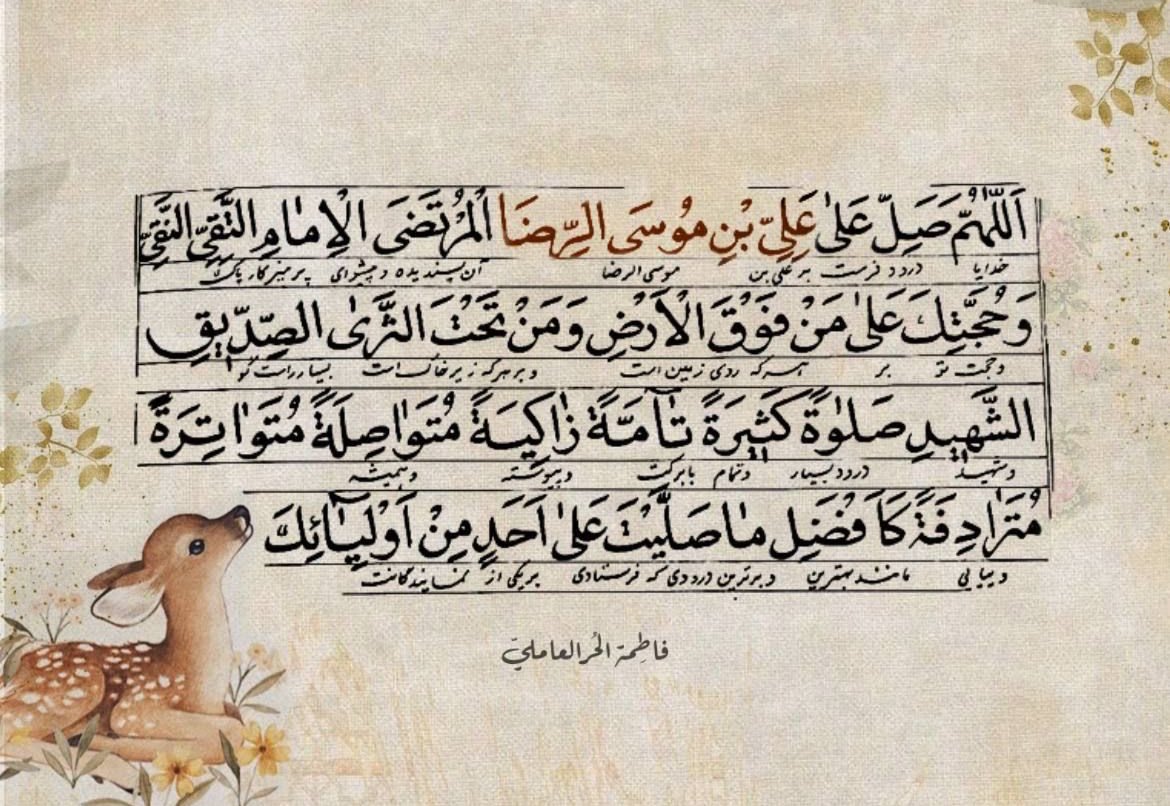 اَللّٰهُمَّ صَلِّ عَلىٰ عَلِيِّ بْنِ مُوسَى الرِّضَا الْمُرْتَضَى الْاِمٰامِ التَّقِيِّ النَّقِيِّ
خدایا درود فرست بر علی بن موسی الرضا آن پسندیده و پیشوای پرهیزکار پاک
وَحُجَّتِكَ عَلىٰ مَنْ فَوْقَ الْاَرْضِ وَمَنْ تَحْتَ الثَّرىٰ الصِّدّٖيقِ
وحجت تو بر هر که روی زمین است و بر هر که زیر خاک است بسیار راست گو
الشَّهٖيدِ صَلٰوةً كَثٖيرَةً تٰآمَّةً زٰاكِيَةً مُتَوٰاصِلَةً مُتَوٰاتِرَةً
وشهید درود بسیار وتمام بابرکت وپیوسته وهمیشه
مُتَرٰادِفَةً كَاَفْضَلِ مٰا صَلَّيْتَ عَلىٰ اَحَدٍ مِنْ اَوْلِيٰآئِكَ
وپیاپی مانند بهترین وبرترین درودی که فرستادی بر یکی از نمایندگانت
فاطِمة الحُر العامليّ